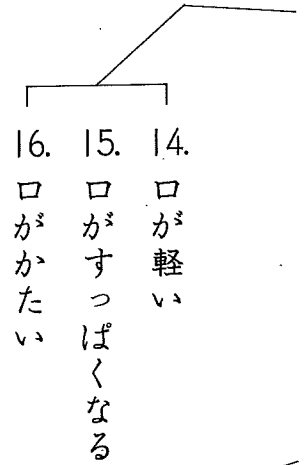 14. 口が軽い
15. 口がすっぱくなる
16. 口がかたい